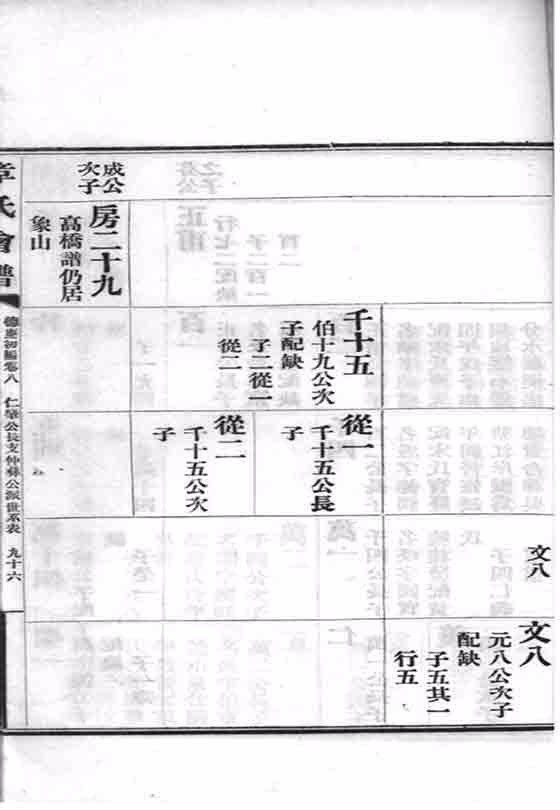 文八
文八
元八公次子
配缺
子五其一
行五
千十五
伯十九公次
子配缺
子二從一
從二
從一
千十五公長
子
從二
千十五公次
子
成公
次子
房二十九
高橋譜仍居
象山
章氏會譜
德慶初編卷八 仁肇公長支仲彝公派世系表 九十六